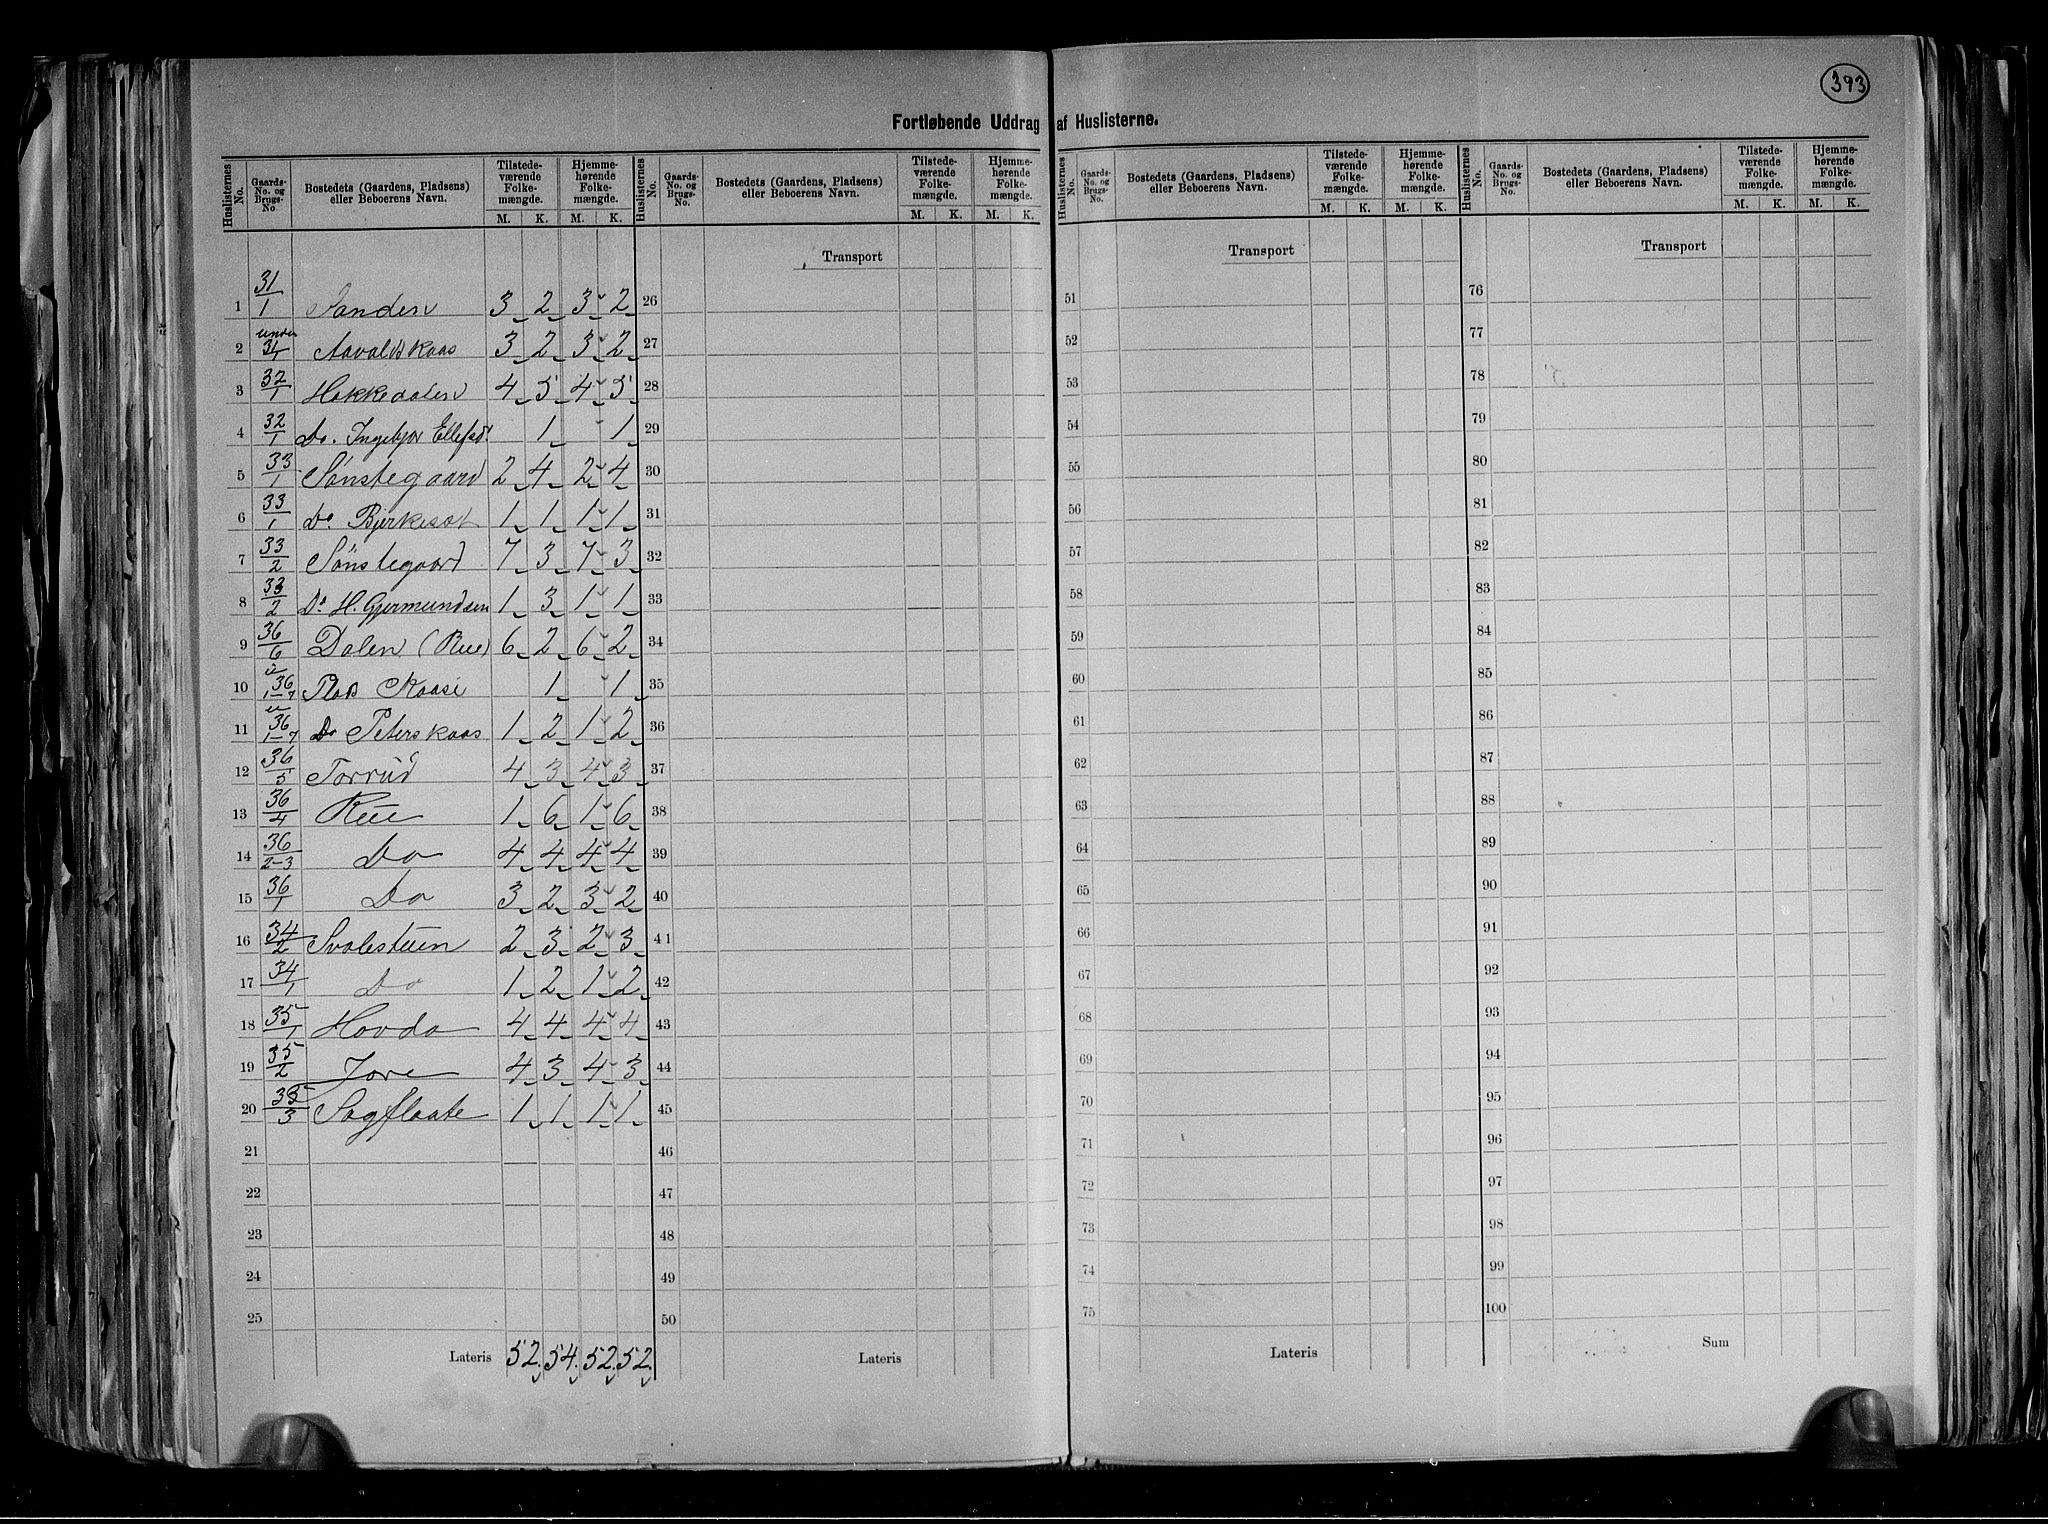 393
Fortløbende Uddrag af Huslisterne.
Huslisternes No. Gaards-No. og Brugs-No. Bostedets (Gaardens, Pladsens) eller Beboerens Navn. Tilstedeværende Folkemængde. M. K. Hjemmehørende Folkemængde. M. K.
Huslisternes No. Gaards-No. og Brugs-No. Bostedets (Gaardens, Pladsens) eller Beboerens Navn. Tilstedeværende Folkemængde. M. K. Hjemmehørende Folkemængde. M. K.
Huslisternes No. Gaards-No. og Brugs-No. Bostedets (Gaardens, Pladsens) eller Beboerens Navn. Tilstedeværende Folkemængde. M. K. Hjemmehørende Folkemængde. M. K.
Huslisternes No. Gaards-No. og Brugs-No. Bostedets (Gaardens, Pladsens) eller Beboerens Navn. Tilstedeværende Folkemængde. M. K. Hjemmehørende Folkemængde. M. K.
Transport Transport Transport
1 31/1 Sanden 3 2 3 2 26 51 76
2 under 31/1 Aavaldskaas 3 2 3 2 27 52 77
3 32/1 Hakkedalen 4 5 4 5 28 53 78
4 32/1 Do. Ingebjor Ellefsd. 1 1 29 54 79
5 33/1 Sønstegaard 2 4 2 4 30 55 80
6 33/1 Do Bjerkesæt 1 1 1 1 31 56 81
7 33/2 Sønstegaard 7 3 7 3 32 57 82
8 33/2 Do H. Gjermundsen 1 3 1 1 33 58 83
9 36/6 Dalen (Rue) 6 2 6 2 34 59 84
10 u 36/1-7 Plads Kaasi 1 1 35 60 85
11 u 36/1-7 Do Peterskaas 1 2 1 2 36 61 86
12 36/5 Torrud 4 3 4 3 37 62 87
13 36/4 Rue 1 6 1 6 38 63 88
14 36/2-3 Do 4 4 4 4 39 64 89
15 36/1 Do 3 2 3 2 40 65 90
16 34/2 Svalesteen 2 3 2 3 41 66 91
17 34/1 Do 1 2 1 2 42 67 92
18 35/1 Hovda 4 4 4 4 43 68 93
19 35/2 Jore 4 3 4 3 44 69 94
20 35/3 Sagflaate 1 1 1 1 45 70 95
21 46 71 96
22 47 72 97
23 48 73 98
24 49 74 99
25 50 75 100
Lateris 52. 54. 52. 52. Lateris Lateris Sum